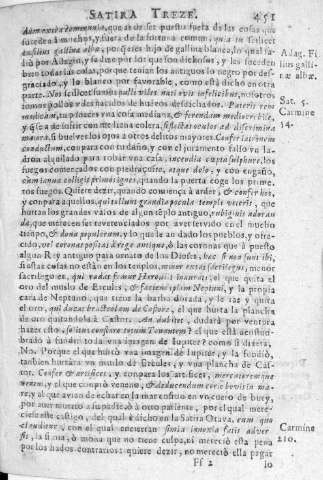 SATIRA TREZE. 451
dum extra communia, que as de ser puesta fuera de las cosas que
suceden a muchos, y fuera de la fortuna comun, quia tu scilicet
filius gallinæ albæ, porque eres hijo de gallina blanca, lo qual sa-
lió por Adagio, y se dize por los que son dichosos, y les suceden
bien todas las cosas, porque tenian los antiguos lo negro por des-
graciado, y lo blanco por favorable, como está dicho en otra
parte. Nos scilicet sumus pulli viles nati ovis infelicibus, nosotros
somos pollos viles nacidos de huevos desdichados. Pateris rem
modicam, tu padeces vna cosa mediana, & ferendam mediocri bile,
y que se ha de sufrir con mediana colera, si flectas oculos ad discrimina
maiora, si buelves los ojos a otros delitos mayores. Confer latronem
conductum, compara con tu daño, y con el juramento falso vn la-
dron alquilado para robar vna casa, incendia cœpta sulphure, los
fuegos començados con piedraçufre, atque dolo, y con engaño,
cum ianua colligit primos ignes, quando la puerta coge los prime-
ros fuegos. Quiere dezir, quando comença à arder, & confer hos,
y compara aquellos, qui tollunt grandia pocula templi veteris, que
hurtan los grandes vasos de algun tẽplo antiguo, robiginis adoran-
dæ, que merecen ser reverenciados por aver servido en el mucho
tiempo, & dona populorum, y lo que le an dado los pueblos, y ofre-
cido, vel coronas positas à rege antiquo, ò las coronas que à puesto
algun Rey antiguo para ornato de los Dioses, hæc si non sunt ibi,
si estas cosas no están en los templos, minor extat sacrilegus, menor
sacrilego es, qui radat femur Herculis inaurati, el que quita el
oro del muslo de Ercules, & faciem ipsam Neptuni, y la propia
cara de Neptuno, que tiene la barba dorada, y le rae y quita
el oro, qui ducat bracteolam de Castore, el que hurta la plancha
de oro quitandosela à Castor. An dubitet, dudará por ventura
hazer esto, solitus conflare totum Tonantem? el que está acostum-
brado à fundir toda vna imagen de Iupiter? como si dixera,
No. Porque el que hurtò vna imagen de Iupiter, y la fundiò,
tambien hurtara vn muslo de Ercules, y vna plancha de Cas-
tor. Confer & artifices, y compara los artifices, mercatoremque
veneni, y el que comprò veneno, & deducendum corio bovis in ma-
re, y al que avian de echar en la mar cosido en vn cuero de buey,
por aver muerto a su padre, ò à otro pariente, por el qual mere-
cio este castigo, del qual è dicho en la Satira Otava, cum quo
clauditur, con el qual encierran simia innoxia fatis adver-
sis, la simia, ò mona que no tiene culpa, ni mereciò esta pena
por los hados contrarios: quiere dezir, no mereciò ella pagar
Ff 2 lo
Adag. Fi-
lius galli-
næ albæ.
Sat. 5.
Carmine
14.
Carmine
210.